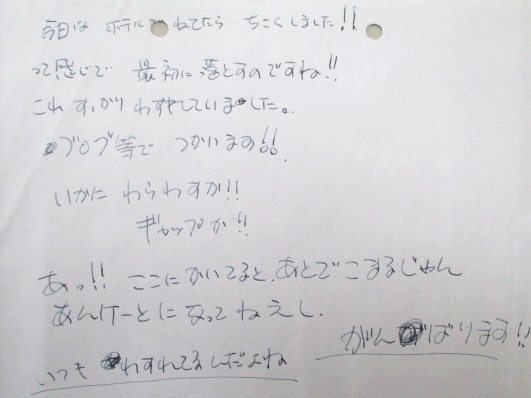 今日は ホテルで ねてたら ちこくしました!!
って感じで 最初に落とすのですね!!
これ すっかり わすれていました。
ブログ等で つかいます!!
いかに わらわすか!!
ギャップか!!
あっ!! ここにかいてると、あとでこまるじゃん
あんけーとになってねえし.
がんばります!!
いつも わすれてるんだよね